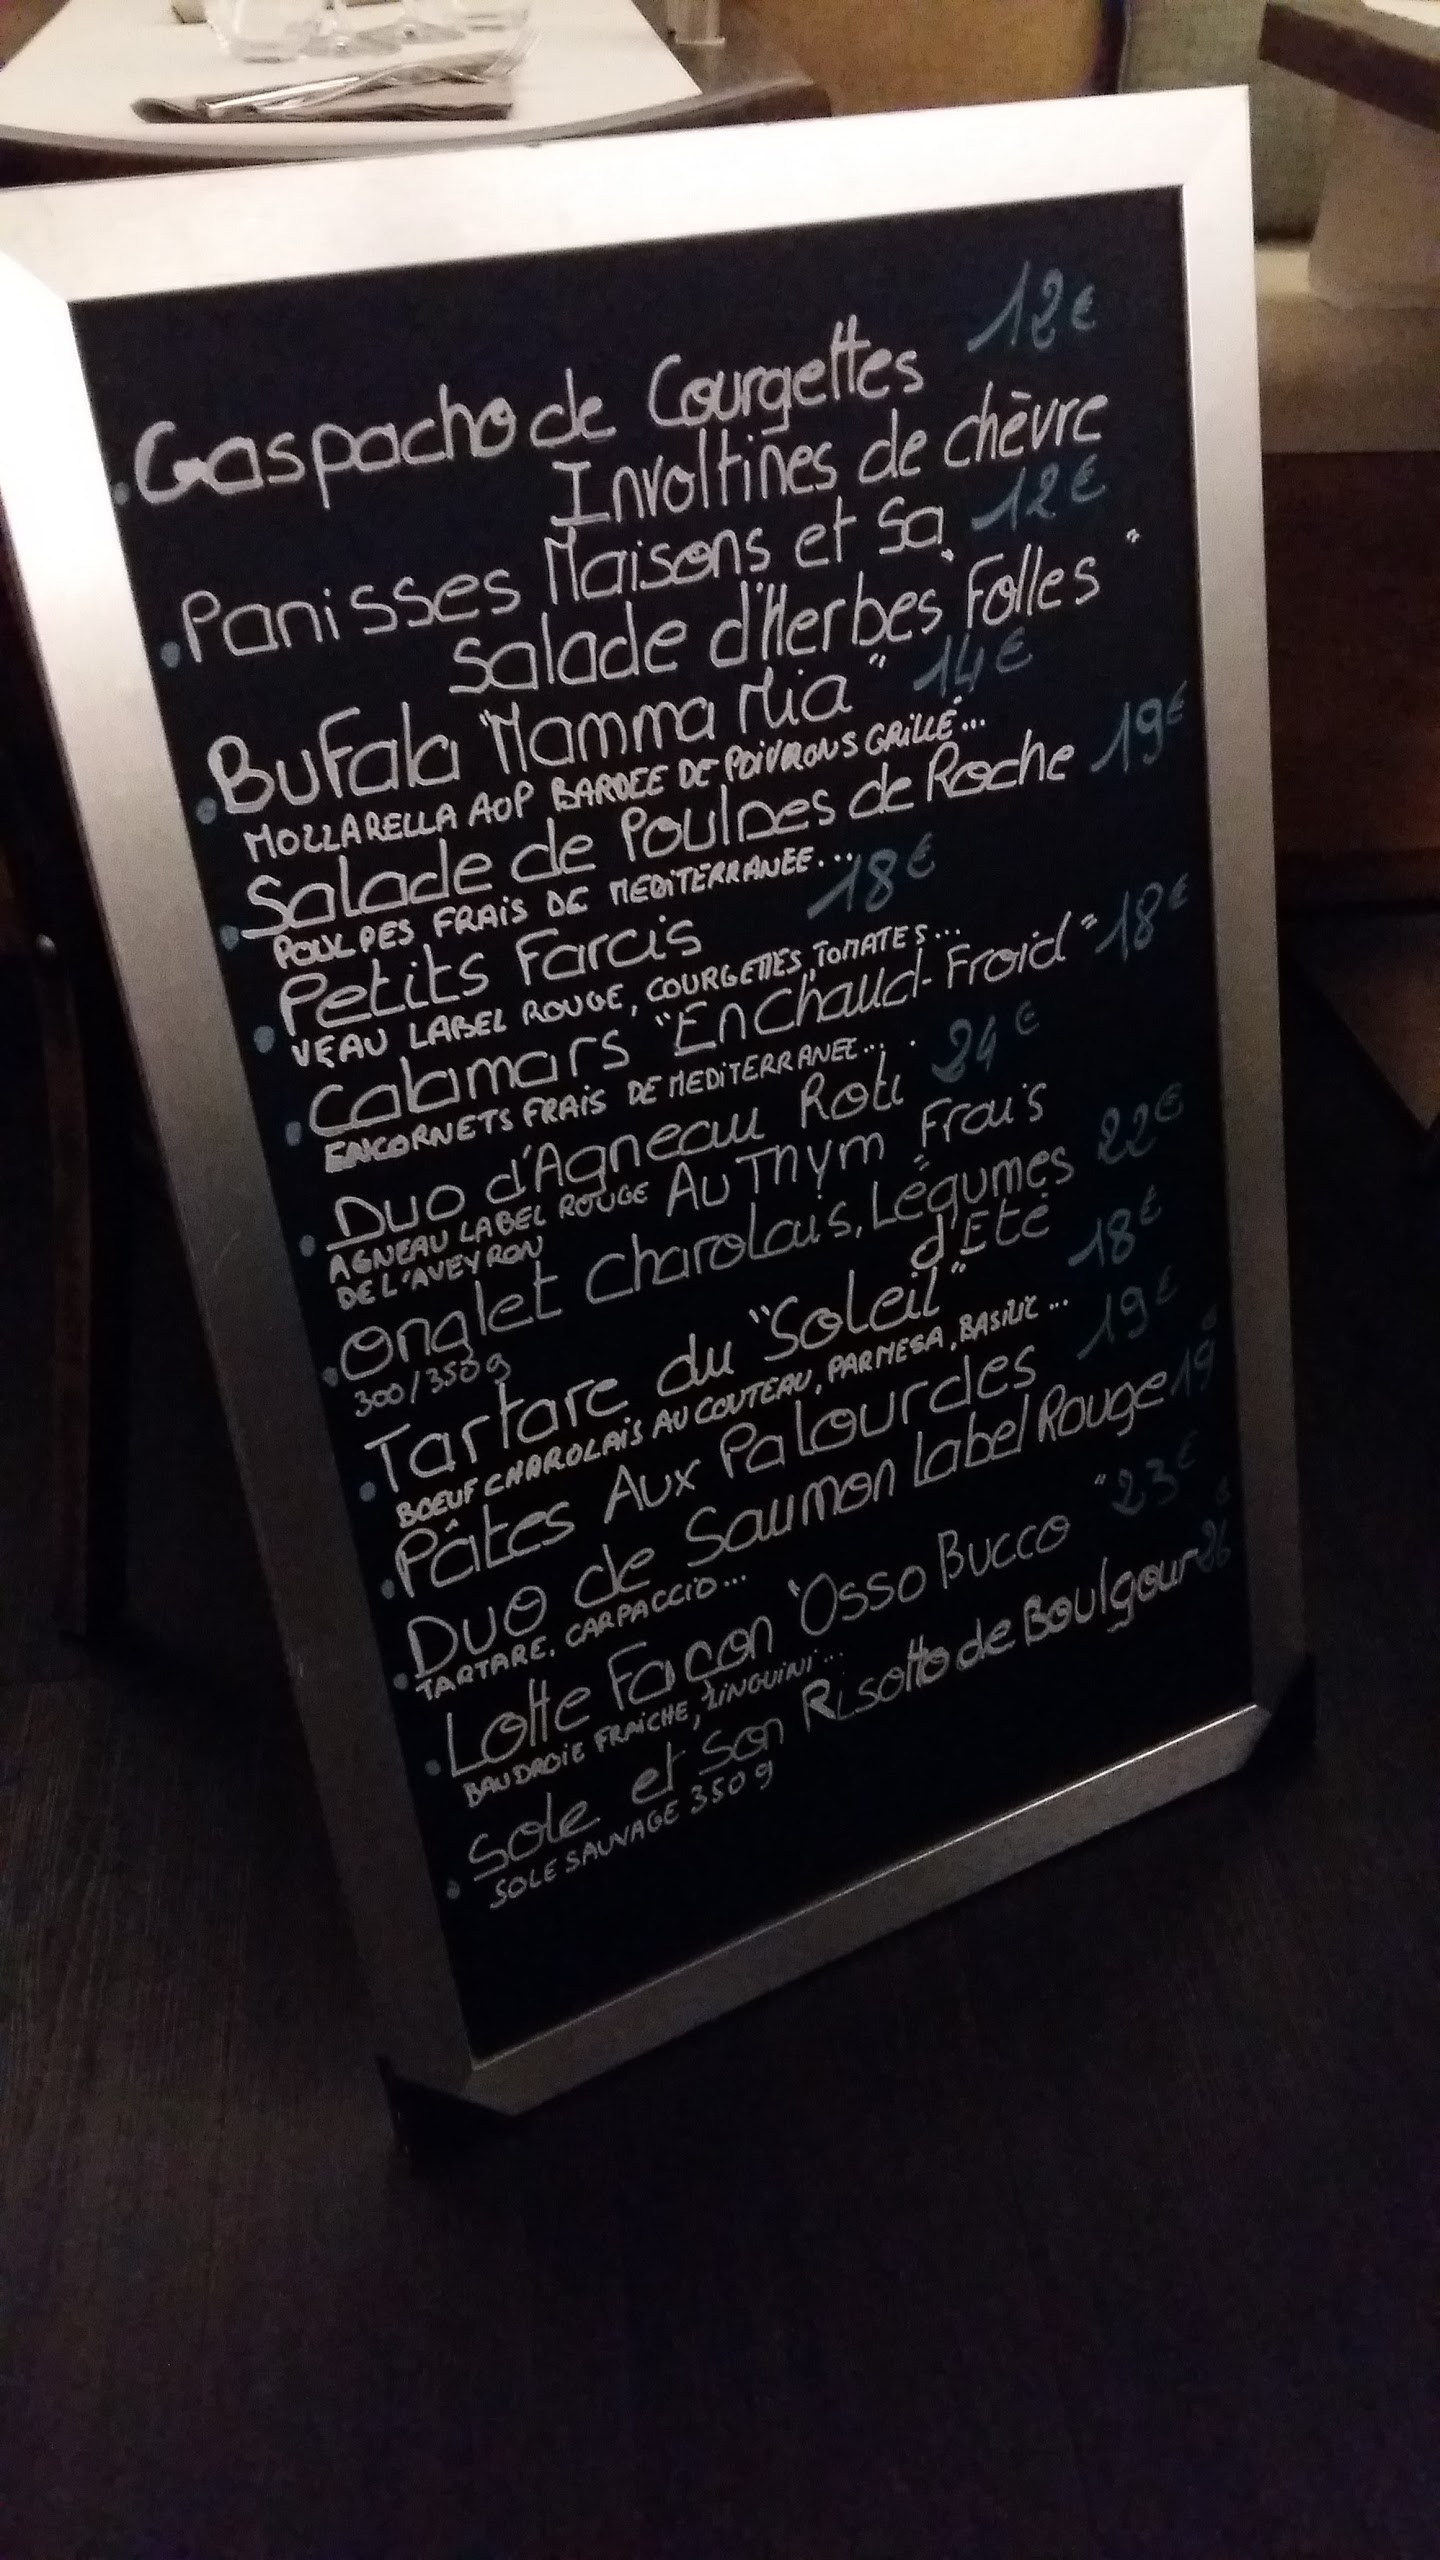 Gaspacho de Courgettes 12€
Involtines de chèvre
Panisses Maisons et Sa 12€
Salade d'Herbes "Folles"
Bufala "Mamma Mia" 14€
MOZZARELLA AOP BARDEE DE POIVRONS GRILLÉ...
Salade de Poulpes de Roche 19€
POULPES FRAIS DE MEDITERRANEE...
Petits Farcis 18€
VEAU LABEL ROUGE, COURGETTES, TOMATES...
Calamars "En Chaud-Froid" 18€
ENCORNETS FRAIS DE MEDITERRANEE...
Duo d'Agneau Roti 24€
AGNEAU LABEL ROUGE Au Thym Frais
DE L'AVEYRON
Onglet Charolais, Légumes 22€
d'Eté
300/350g
Tartare du "Soleil" 18€
BŒUF CHAROLAIS AU COUTEAU, PARMESA, BASILIC...
Pâtes Aux Palourdes 19€
Duo de Saumon Label Rouge 19€
TARTARE, CARPACCIO...
Lotte Façon "Osso Bucco" 23€
BAUDROIE FRAICHE, LINGUINI...
Sole et Son Risotto de Boulgour 26€
SOLE SAUVAGE 350g